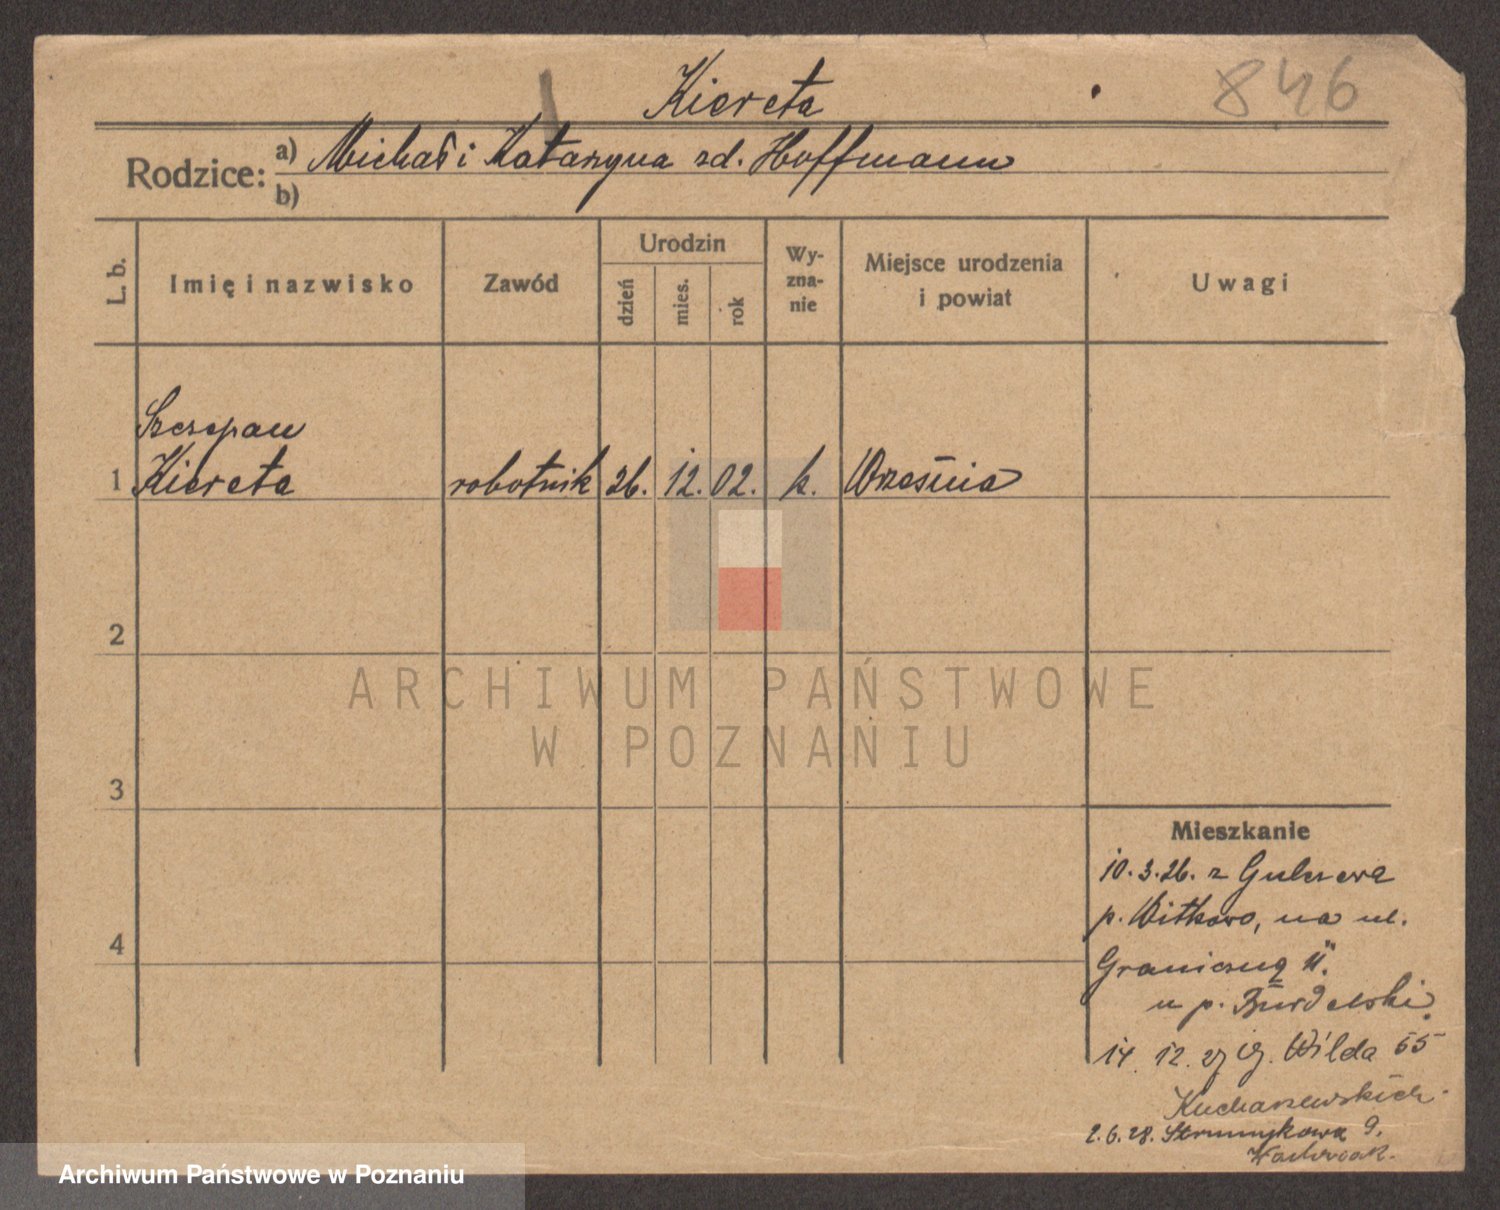 Kiereta
846
Rodzice:
a) Michał i Katarzyna zd. Hoffmann
b)
L. b.
Imię i nazwisko
Zawód
Urodzin
dzień
mies.
rok
Wy-
zna-
nie
Miejsce urodzenia
i powiat
Uwagi
Szczepan
1 Kiereta robotnik 26. 12. 02. k. Września
2
3
4
ARCHIWUM PAŃSTWOWE
W POZNANIU
Mieszkanie
10.3.26. z
p. Witkowo, na ul.
Graniczną 11.
u p. Burdelski
14. 12. 27 Wilda 65
Kucharzewskich
2.6.28. Strumykowa 9.
Archiwum Państwowe w Poznaniu